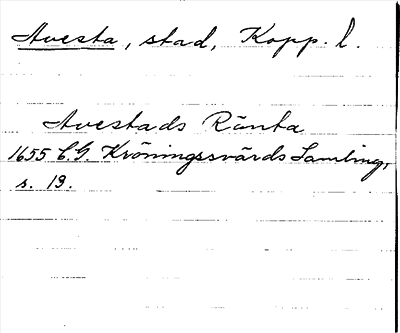 Avesta, stad, Kopp. l.
Avestads Ränta
1655 C.G. Kröningssvärds Samling,
s. 19.